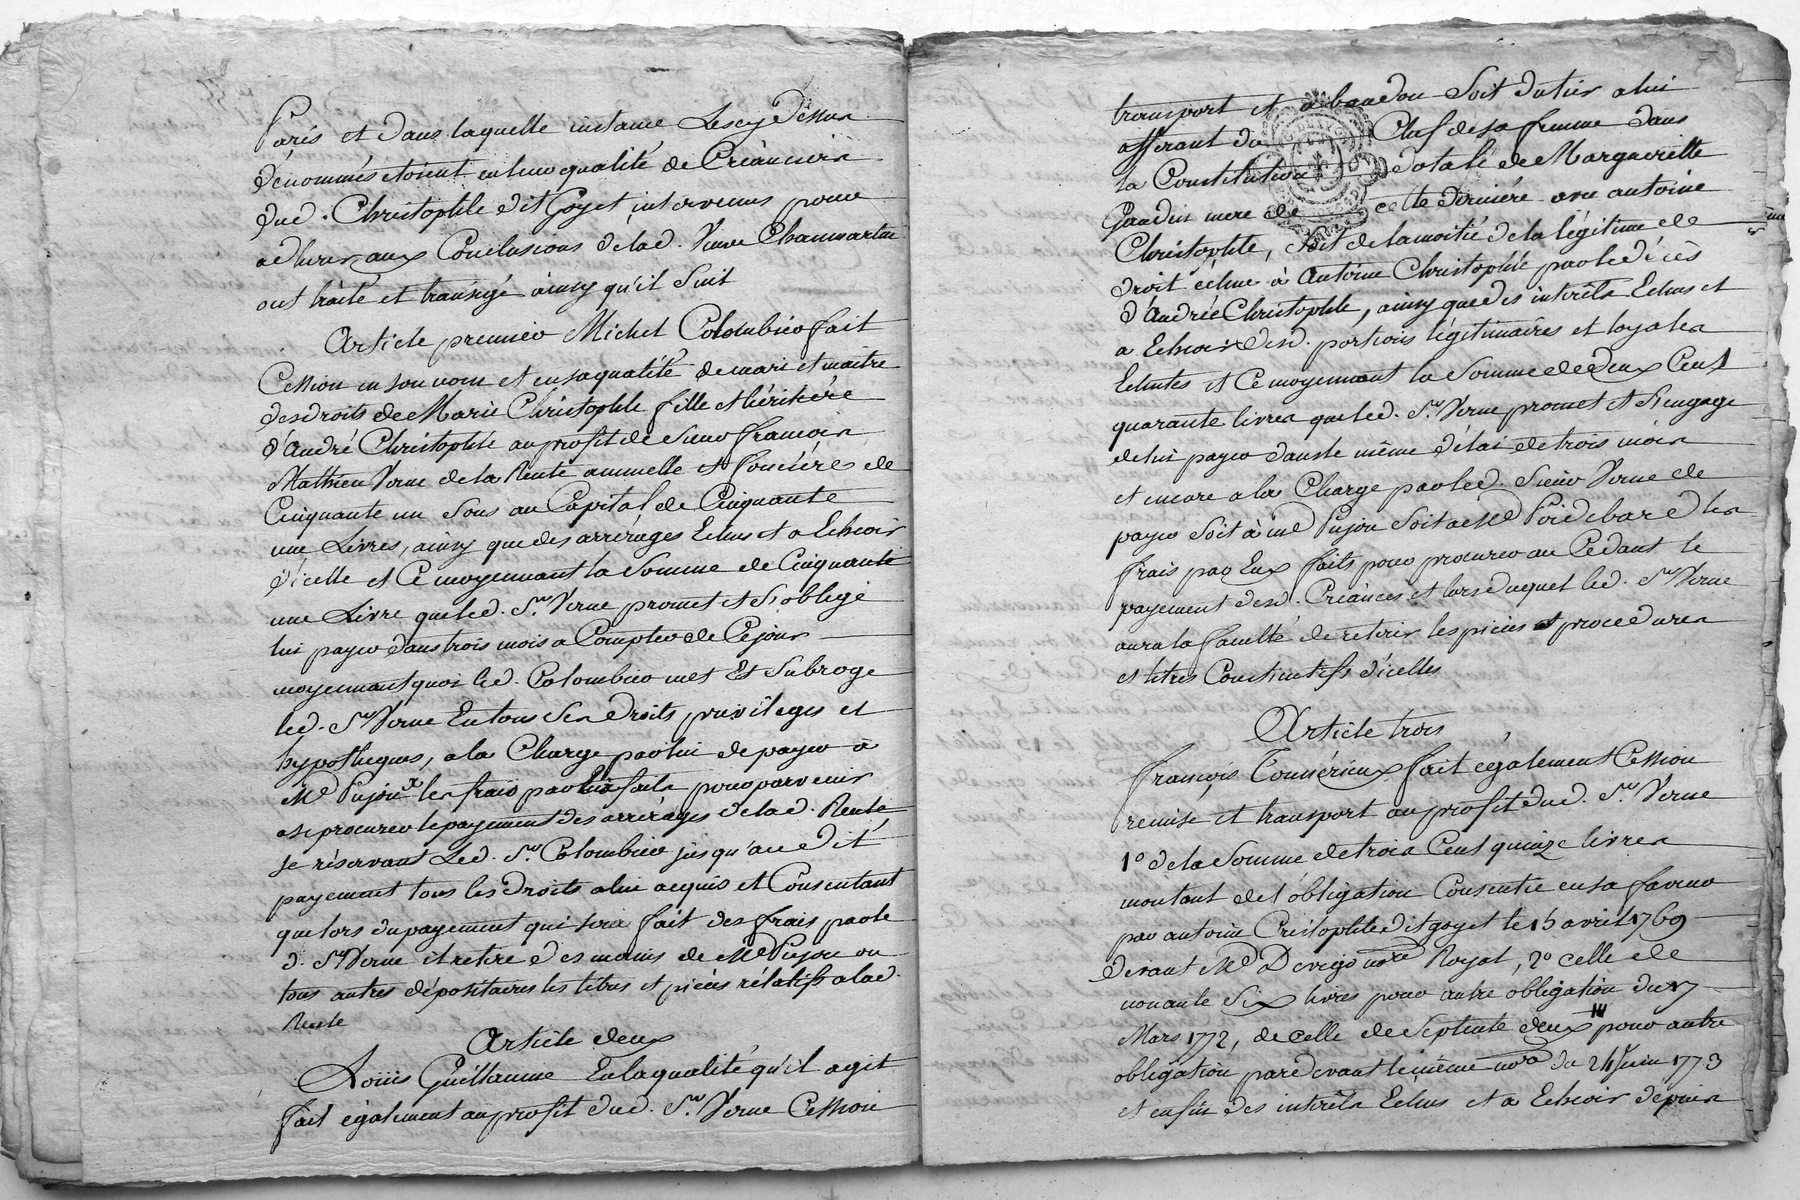 Paris et dans laquelle instance Lescy Dessus
dénommés étoient en leur qualité de Créanciers
dud. Christophle dit Goyet intervenus pour
adhérer aux Conclusions de lad. Veuve Chaumartin
ont traité et transigé ainsy qu'il Suit
Article premier Michel Colombier fait
Cession en son nom et en sa qualité de mari et maitre
des droits de Marie Christophle fille et héritière
d'André Christophle au profit de Sieur françois
Mathieu Verne de la Rente annuelle et foncière de
Cinquante un Sous au Capital de Cinquante
une Livres, ainsy que des arrérages Echus et a Echeoir
d'icelle et Ce moyennant la Somme de Cinquante
une Livre que led. Sr. Verne promet et S'oblige
lui payer dans trois mois a Compter de Ce jour
moyennant quoi led. Colombier met Et Subroge
led. Sr Verne En tous Ses Droits privilèges et
hypotheques, a la Charge par lui de payer à
Me Pujon les frais par lui faits pour parvenir
a se procurer le payement des arrérages de lad. Rente
Se réservant Led. Sr. Colombier jusqu'au dit
payement tous les droits a lui acquis et Consentant
que lors du payement qui sera fait des frais par le
d. Sr Verne il retire des mains de Me Pujon ou
tous autres dépositaires les titres et pièces rélatifs a lad.
Rente
Article deux
Loüis Guillaume En la qualité qu'il agit
fait également au profit dud. Sr. Verne Cession
transport et abandon Soit du tier a lui
afférant du Chef de sa femme dans
la Constitution dotale de Margueritte
Gaudin mere de cette dernière avec antoine
Christophle, Soit de la moitié de la légitime de
droit échue à Antoine Christophle par le décès
d'André Christophle, ainsy que des interêts Echus et
a Echeoir desd. portions légitimaires et loyales
Echutes et Ce moyennant la Somme de deux Cent
quarante livres que led. Sr Verne promet et S'engage
de lui payer dans le même délai de trois mois
et encore a la Charge par led. Sieur Verne de
payer Soit à me Pujon Soit a Me Poidebard les
frais par Eux faits pour procurer au Cédant le
payement desd. Créances et lors duquel led. Sr Verne
aura la faculté de retirer les pièces et procedures
et titres Constitutifs d'icelles
Article trois
françois Toussérieux fait également Cession
remise et transport au profit dud. Sr. Verne
1o de la Somme de trois Cent quinze livres
montant de l'obligation Consentie en sa faveur
par antoine Cristophle dit goyet le 15 avril 1769
devant Me Devigo nore Royal, 2o celle de
nonante Six livres pour autre obligation du 17
Mars 1772, de celle de Septente deux pour autre
obligation pardevant le même nore du 24 Juin 1773
et enfin des interêts Echus et a Echeoir depuis